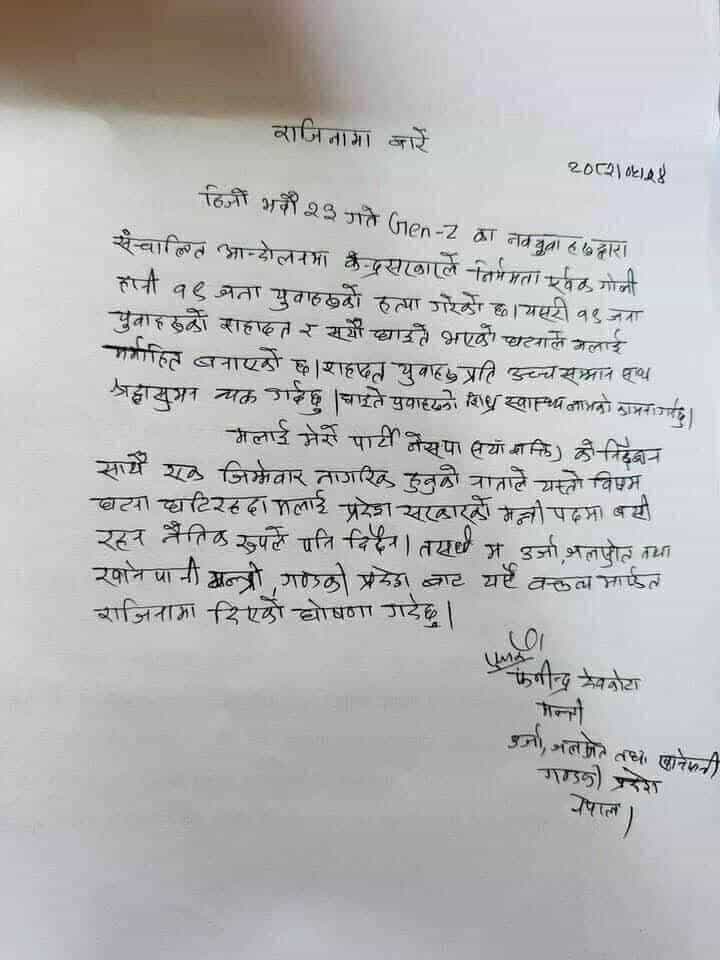 राजिनामा बारे
२०८२।०५।२४
हिजो भदौ २३ गते Gen-Z का नवयुवाहरुद्वारा
संञ्चालित आन्दोलनमा केन्द्रसरकारले निर्ममता पूर्वक गोली
हानी १९ जना युवाहरुको हत्या गरेको छ। यसरी १९ जना
युवाहरुको शहादत र सयौं घाइते भएको घटनाले मलाई
मर्माहित बनाएको छ। शहादत युवाहरु प्रति उच्च सम्मान साथ
श्रद्धासुमन व्यक्त गर्दछु। घाइते युवाहरुको शिघ्र स्वास्थ्य लाभको कामना गर्दछु।
मलाई मेरो पार्टी नेसपा (नयाँ शक्ति) को निर्देशन
साथै एक जिम्मेवार नागरिक हुनुको नाताले यस्तो विषम
घटना घटिरहदा मलाई प्रदेश सरकारको मन्त्री पदमा बसी
रहन नैतिक रुपले पनि दिदैन। तसर्थ म उर्जा, जलस्रोत तथा
खानेपानी मन्त्री, गण्डकी प्रदेश बाट यसै वक्तव्य मार्फत
राजिनामा दिएको घोषणा गर्दछु।
फणीन्द्र देवकोटा
मन्त्री
उर्जा, जलस्रोत तथा खानेपानी
गण्डकी प्रदेश
नेपाल।